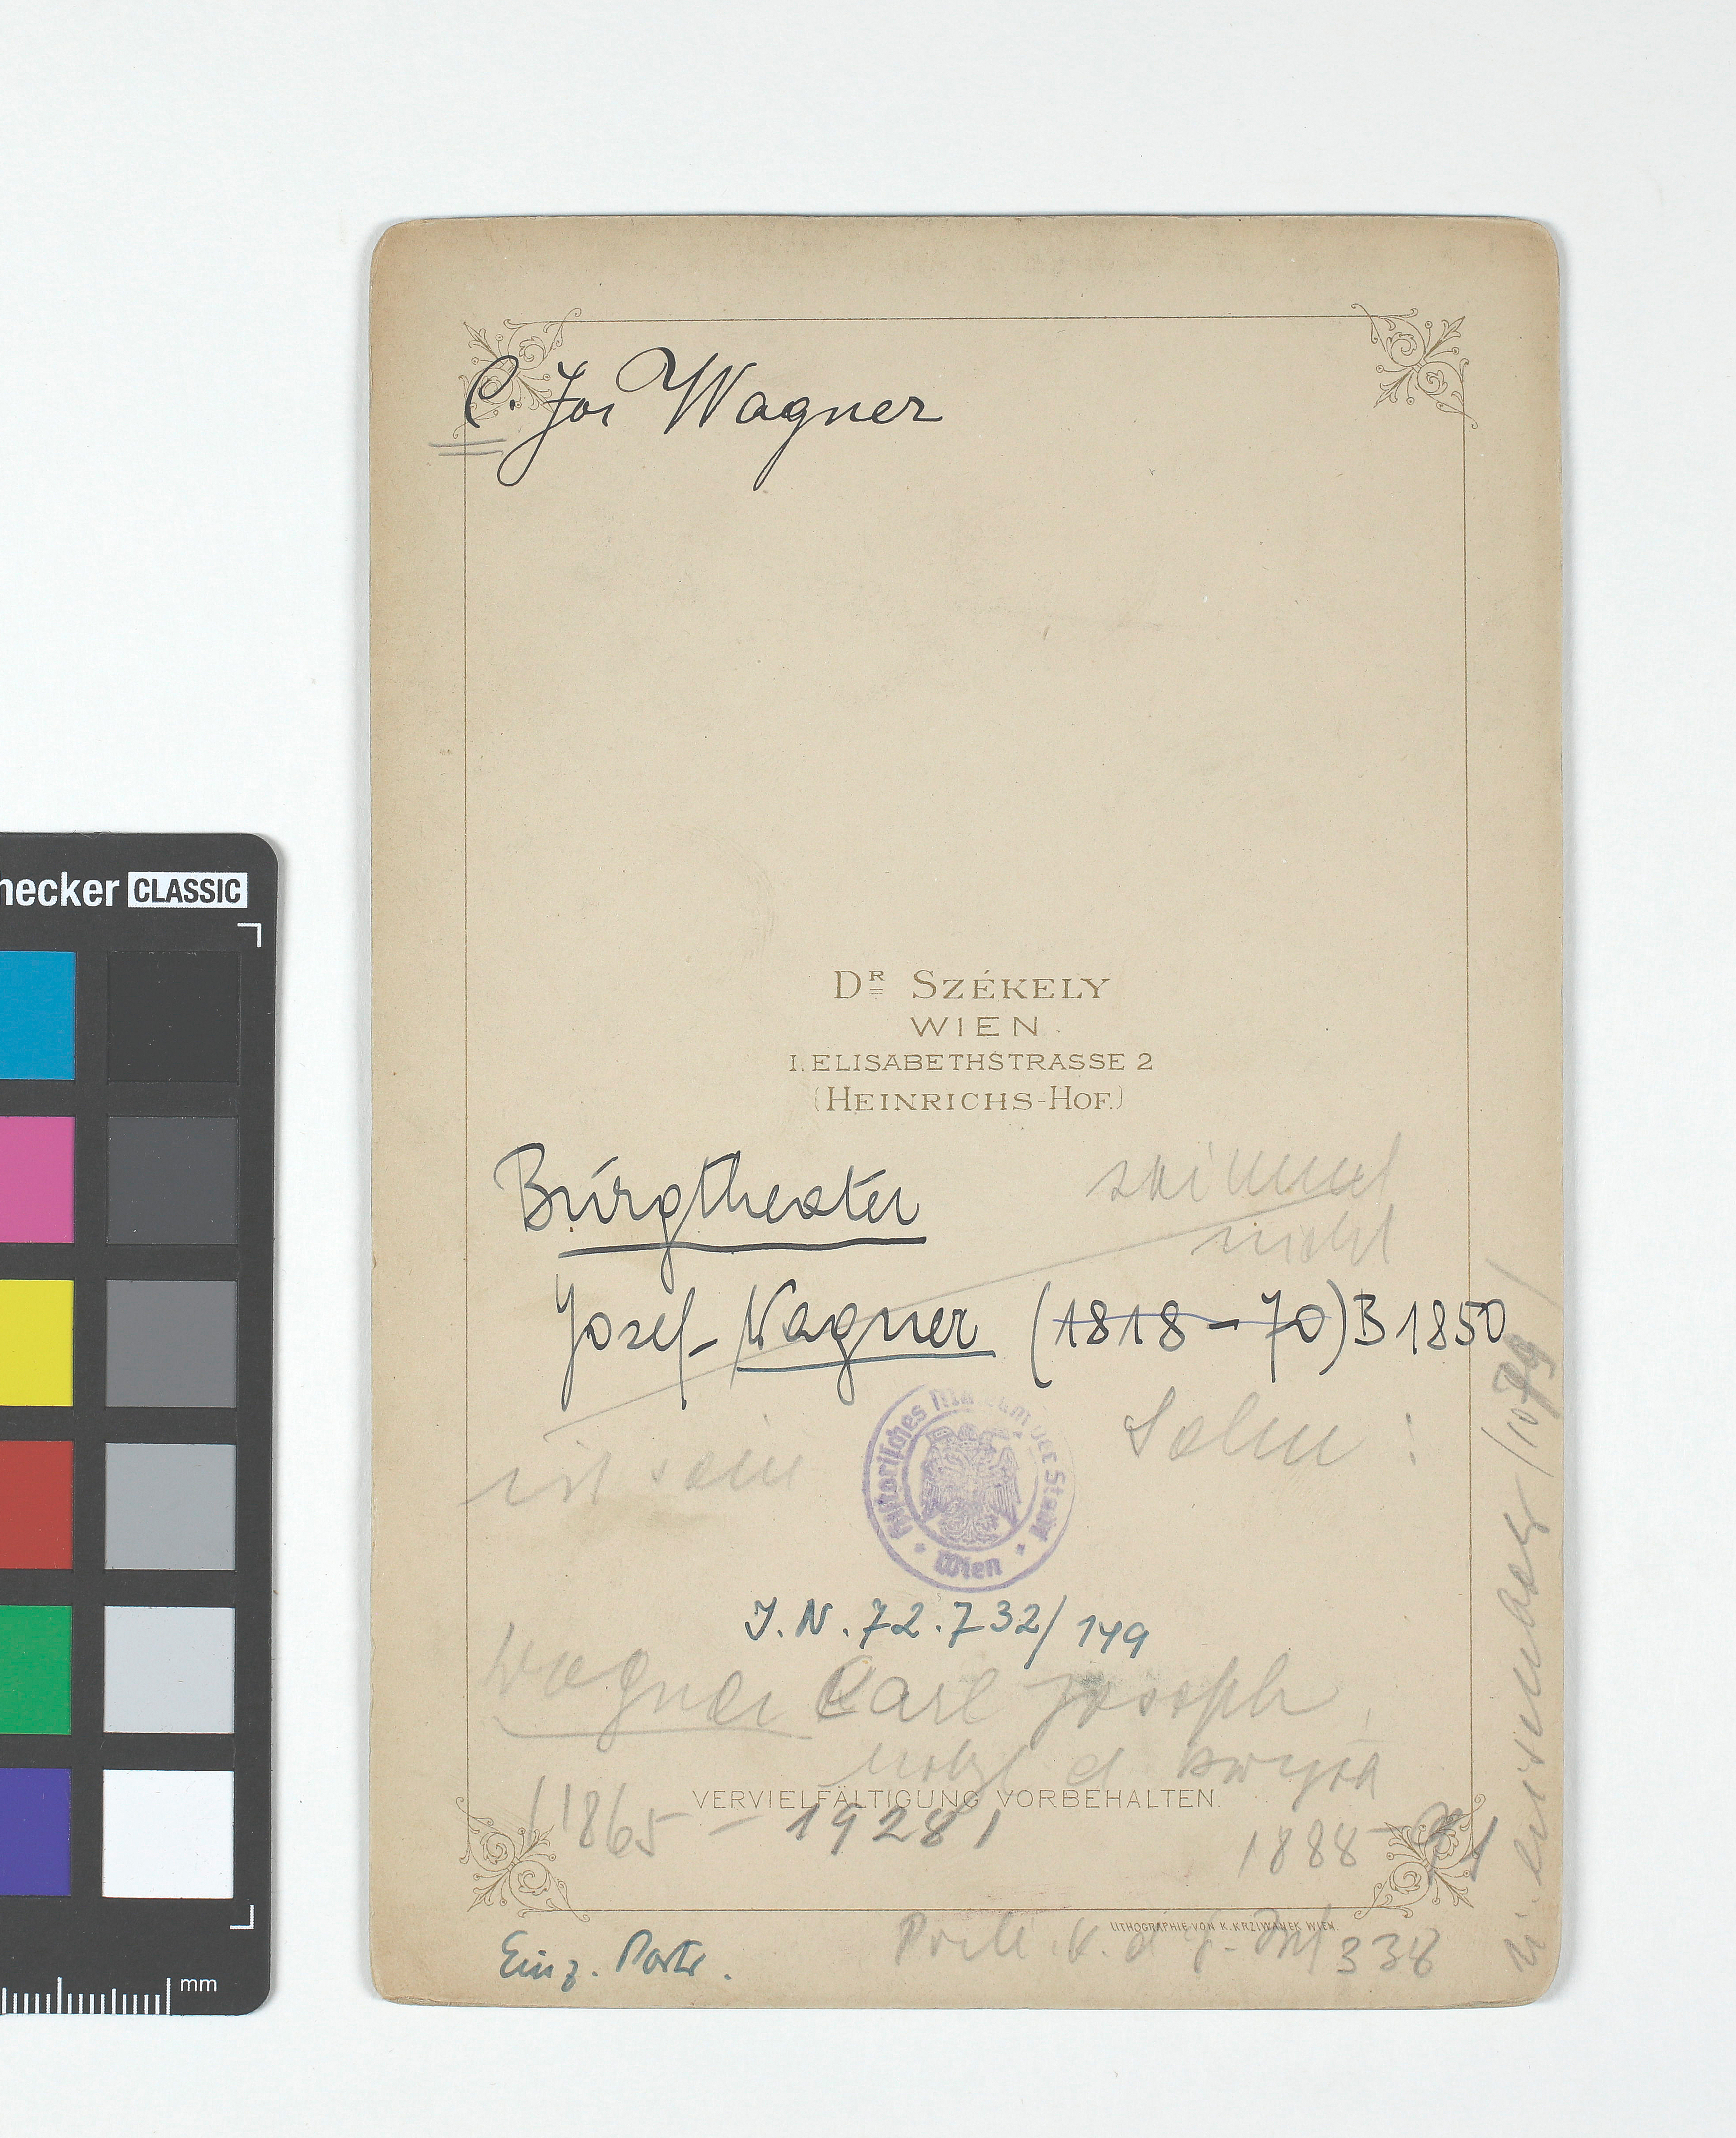 C. Jos Wagner
hecker CLASSIC
DR SZÉKELY
WIEN.
I. ELISABETHSTRASSE 2
(HEINRICHS-HOF.)
Burgtheater
stimmt
nicht
Josef Wagner (1818-70) B 1850
ist sein Sohn :
Historisches Museum der Stadt
Wien
J. N. 72.732/149
Wagner Carl Joseph
VERVIELFÄLTIGUNG VORBEHALTEN.
(1865 - 1928)
1888
LITHOGRAPHIE VON K. KRZIWANEK WIEN.
Einz. Portr.
338
mm